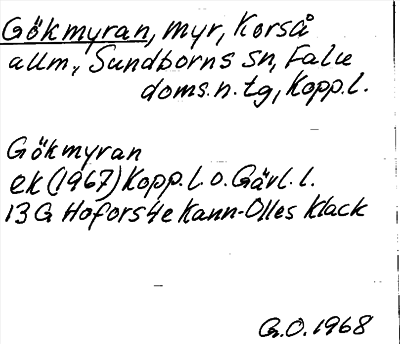 Gökmyran, myr, Korså
allm., Sundborns sn, Falu
doms.n.tg, Kopp.l.
Gökmyran
ek (1967) Kopp.l.o.Gävl.l.
13G Hofors 4e Kann-Olles Klack
G.O. 1968